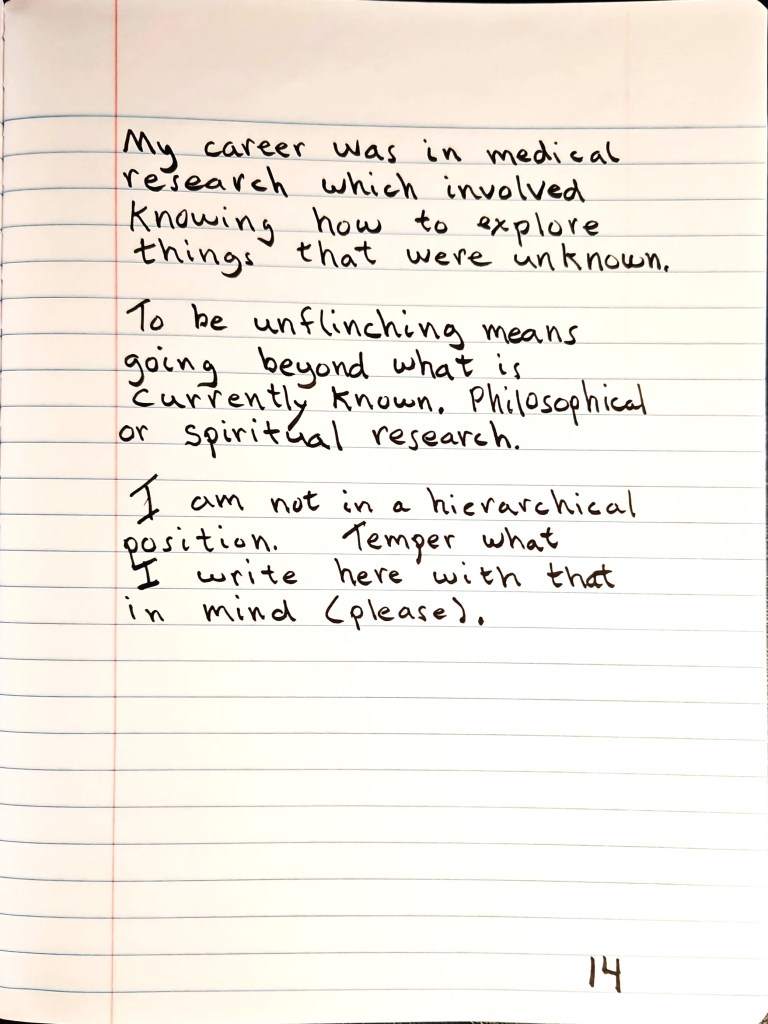 My career was in medical
research which involved
knowing how to explore
things that were unknown.
To be unflinching means
going beyond what is
currently known. Philosophical
or spiritual research.
I am not in a hierarchical
position. Temper what
I write here with that
in mind (please).
14